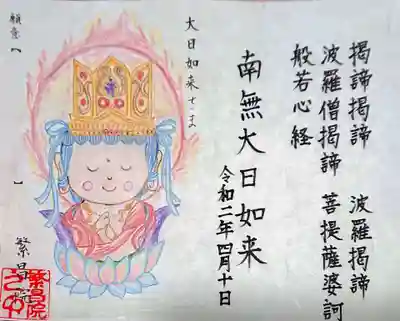 掲諦掲諦　波羅掲諦
波羅僧掲諦　菩提薩婆訶
般若心経
南無大日如来
令和二年四月十日
大日如来さま
願意【　】
繁昌院
繁昌院
之印